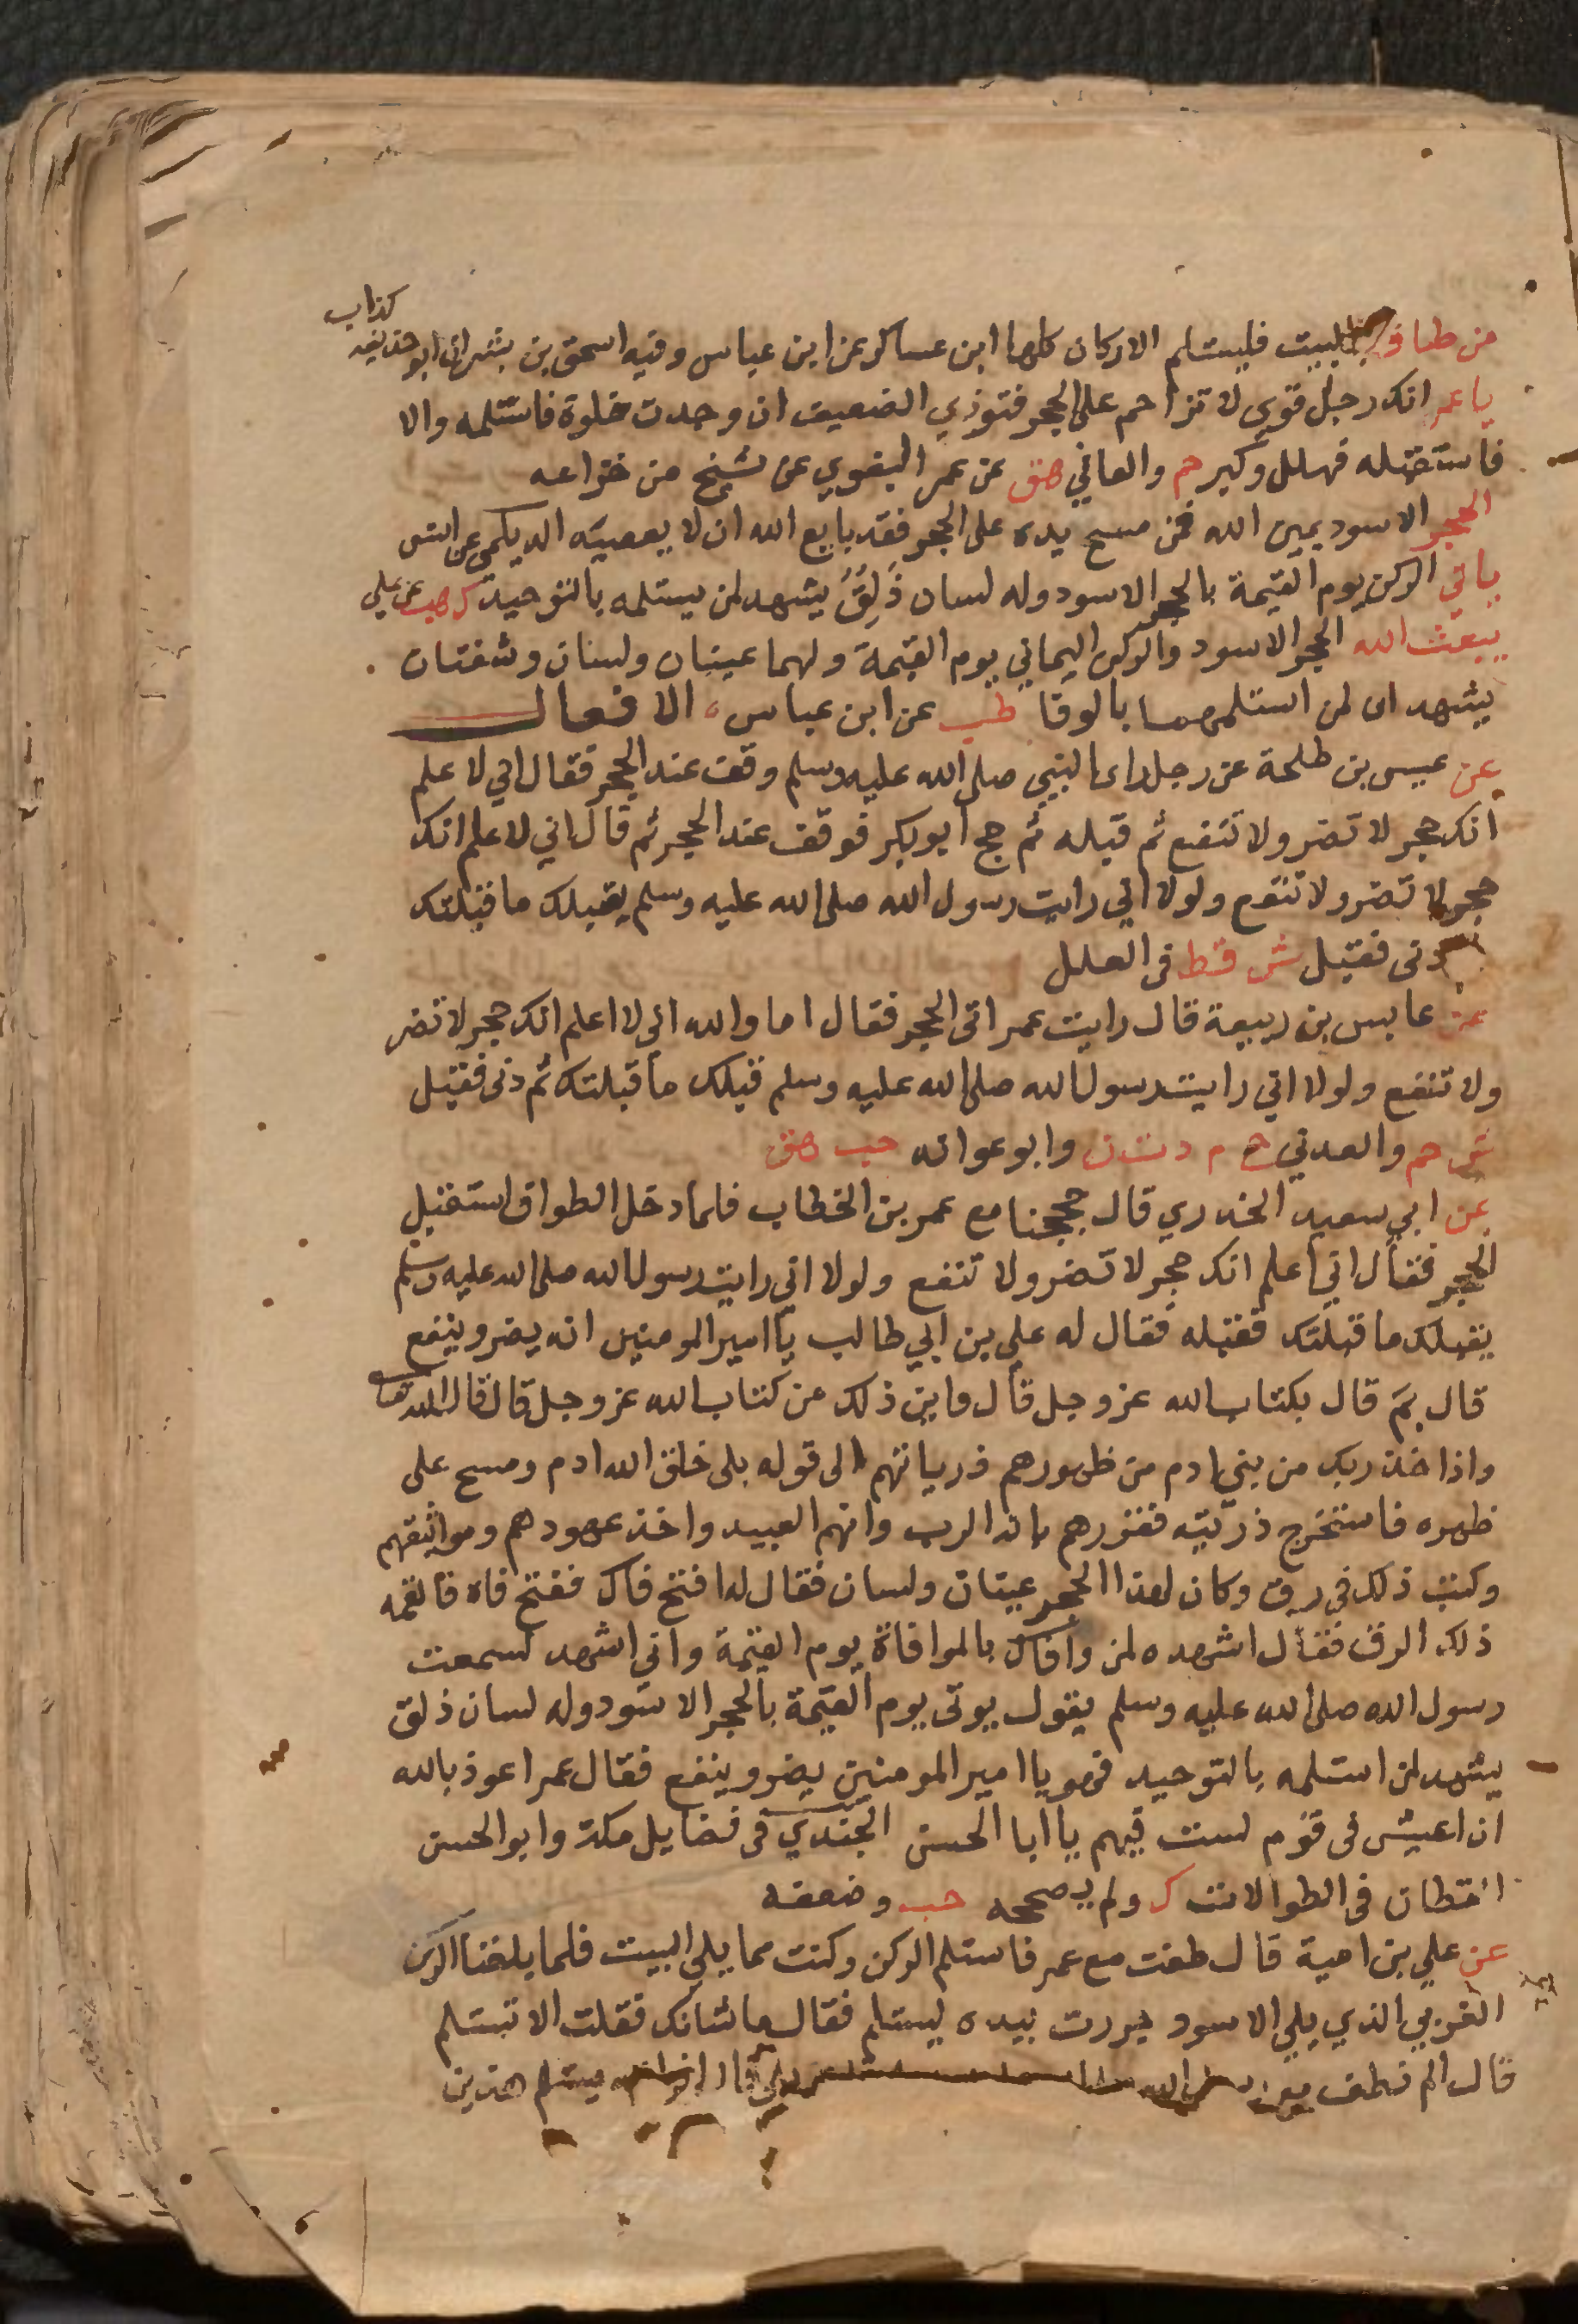 من طاف بالبيت فليستلم الاركان كلها ابن عساكر عن ابن عباس وفيه اسحق بن بشر ابو حذيفه كذاب
يا عمر انك رجل قوي لا تزاحم على الحجر فتوذي الضعيف ان وجدت خلوة فاستلمه والا
فاستقبله فهلل وكبر حم والعدني هق عن عمر البغوي عن شيخ من خزاعه
الحجر الاسود يمين الله فمن مسح يده على الحجر فقد بايع الله ان لا يعصيه الديلمي عن انس
ياتي الركن يوم القيمة بالحجر الاسود وله لسان ذَلِقٌ يشهد لمن يستلمه بالتوحيد ك هب عن علي
يبعث الله الحجر الاسود والركن اليماني يوم القيمة ولهما عينان ولسان وشفتان
يشهدان لمن استلمهما بالوفا طب عن ابن عباس الافعال
عن عيسى بن طلحة عن رجل راى النبي صلى الله عليه وسلم وقف عند الحجر فقال اني لا علم
انك حجر لا تضر ولا تنفع ثم قبله ثم حج ابو بكر فوقف عند الحجر ثم قال اني لا علم انك
حجر لا تضر ولا تنفع ولولا اني رايت رسول الله صلى الله عليه وسلم يقبلك ما قبلتك
دنى فقبل ش قط فى العلل
عن عابس بن ربيعة قال رايت عمر اتى الحجر فقال اما والله انى لا اعلم انك حجر لا تضر
ولا تنفع ولولا اني رايت رسول الله صلى الله عليه وسلم قبلك ما قبلتك ثم دنى فقبل
ش حم والعدني خ م د ت ن وابو عوانه حب هق
عن ابي سعيد الخدري قال حججنا مع عمر بن الخطاب فلما دخل الطواف استقبل
الحجر فقال اني اعلم انك حجر لا تضر ولا تنفع ولولا اني رايت رسول الله صلى الله عليه وسلم
يقبلك ما قبلتك فقبله فقال له علي بن ابي طالب يا امير المومنين انه يضر وينفع
قال بمَ قال بكتاب الله عز وجل قال واين ذلك من كتاب الله عز وجل قال قال الله تعا
واذ اخذ ربك من بني ادم من ظهورهم ذرياتهم الى قوله بلى خلق الله ادم ومسح على
ظهره فاستخرج ذريته فقررهم بانه الرب وانهم العبيد واخذ عهودهم ومواثيقهم
وكتب ذلك في رق وكان لهذا الحجر عينان ولسان فقال له افتح فاك ففتح فاه فالقمه
ذلك الرق فقال اشهد ه لمن وافاك بالموافاة يوم القيمة واني اشهد لسمعت
رسول الله صلى الله عليه وسلم يقول يوتى يوم القيمة بالحجر الاسود وله لسان ذلق
يشهد لمن استلمه بالتوحيد فهو يا امير المومنين يضر وينفع فقال عمر اعوذ بالله
ان اعيش فى قوم لست فيهم يا ابا الحسن الجندي فى فضايل مكة وابو الحسن
القطان فى الطوالات ك ولم يصححه حب وضعفه
عن علي بن امية قال طفت مع عمر فاستلم الركن وكنت مما يلي البيت فلما بلغنا الركن
الغربي الذي يلي الاسود جررت بيده ليستلم فقال ما شانك فقلت الا تستلم
قال الم تطف مع يستلم هذين